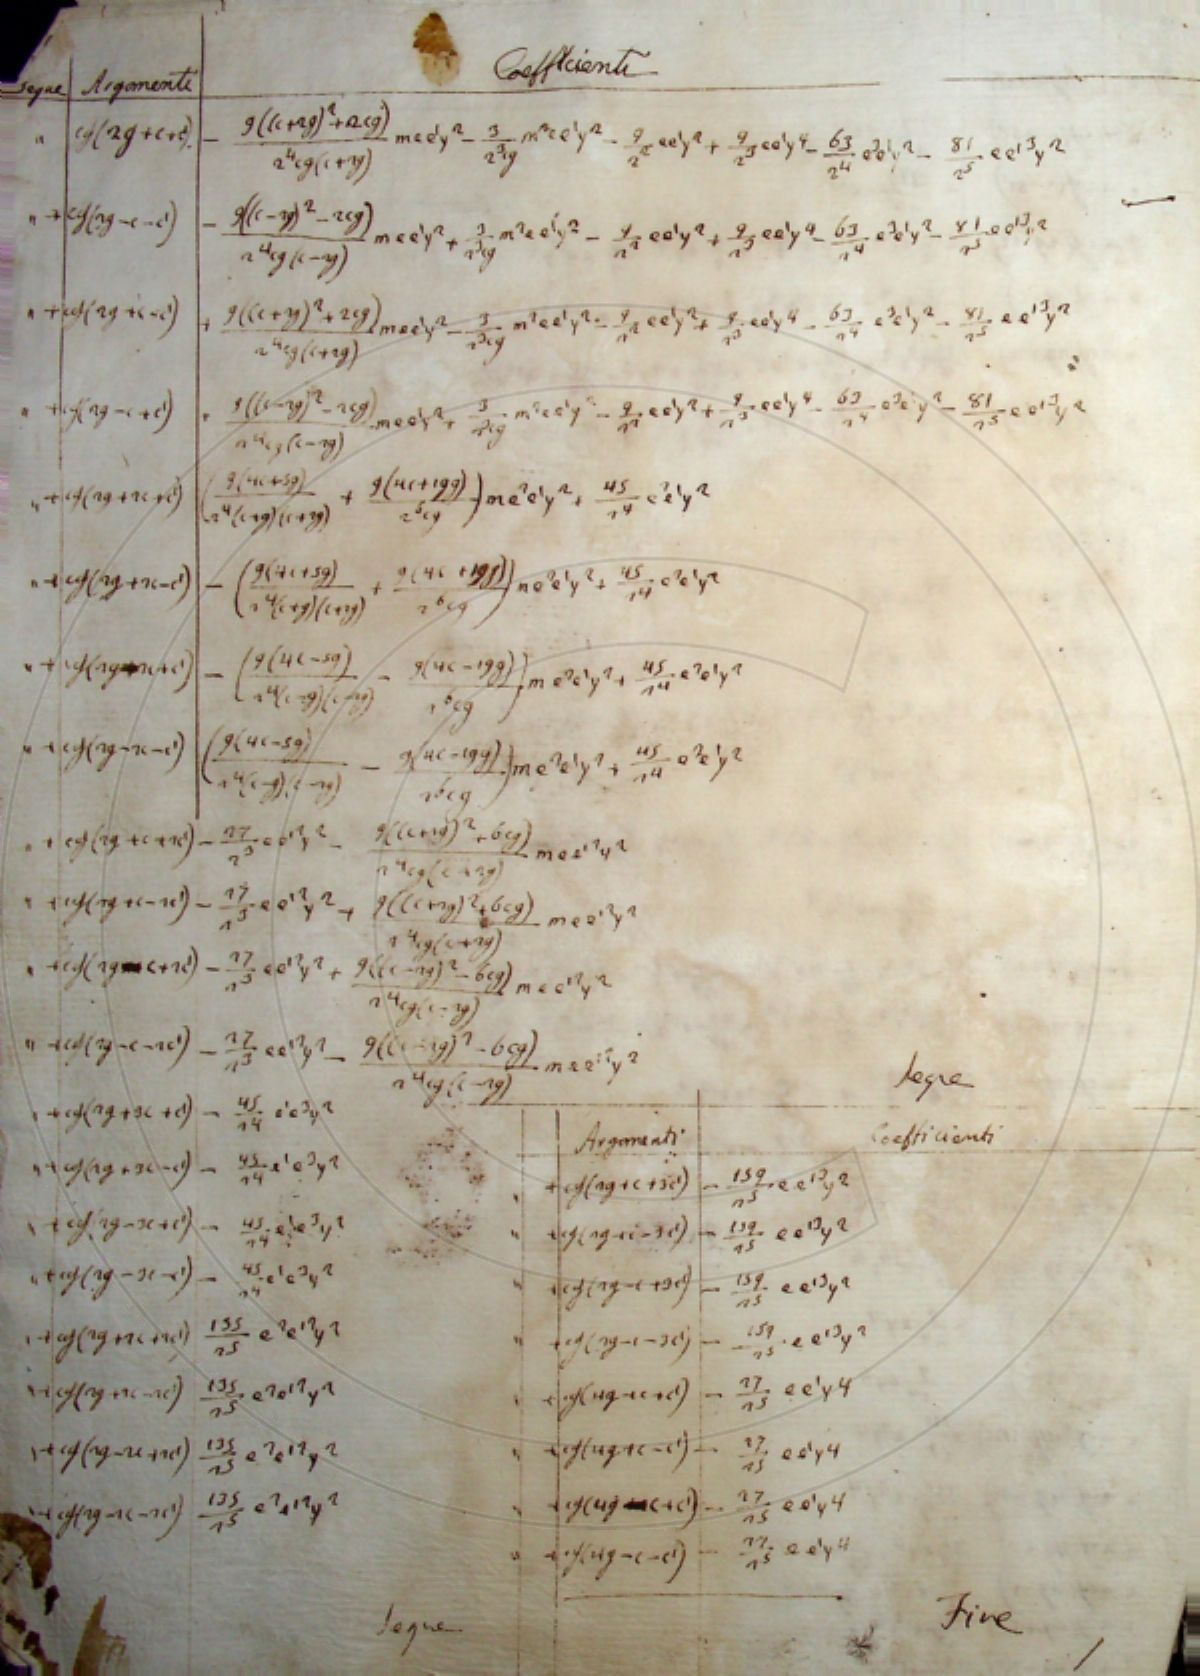 Coefficienti
Segue Argomenti
" cf(2g+c+c') − 9((c+2g)²+2cg)/2⁴cg(c+2g) mee'y² − 3/2³cg m²ee'y² − 9/2² ee'y² + 9/2³ ee'y⁴ − 63/2⁴ e³e'y² − 81/2⁵ ee'³y²
" + cf(2g−c−c') − 9((c−2g)²−2cg)/2⁴cg(c−2g) mee'y² + 3/2³cg m²ee'y² − 9/2² ee'y² + 9/2³ ee'y⁴ − 63/2⁴ e³e'y² − 81/2⁵ ee'³y²
" + cf(2g+c−c') + 9((c+2g)²+2cg)/2⁴cg(c+2g) mee'y² − 3/2³cg m²ee'y² − 9/2² ee'y² + 9/2³ ee'y⁴ − 63/2⁴ e³e'y² − 81/2⁵ ee'³y²
" + cf(2g−c+c') 9((c−2g)²−2cg)/2⁴cg(c−2g) mee'y² + 3/2³cg m²ee'y² − 9/2² ee'y² + 9/2³ ee'y⁴ − 63/2⁴ e³e'y² − 81/2⁵ ee'³y²
" + cf(2g+2c+c') (9(4c+5g)/2⁴(c+g)(c+2g) + 9(4c+19g)/2⁶cg) me²e'y² + 45/2⁴ e²e'y²
" + cf(2g+2c−c') − (9(4c+5g)/2⁴(c+g)(c+2g) + 9(4c+19g)/2⁶cg) me²e'y² + 45/2⁴ e²e'y²
" + cf(2g−2c+c') − (9(4c−5g)/2⁴(c−g)(c−2g) − 9(4c−19g)/2⁶cg) me²e'y² + 45/2⁴ e²e'y²
" + cf(2g−2c−c') (9(4c−5g)/2⁴(c−g)(c−2g) − 9(4c−19g)/2⁶cg) me²e'y² + 45/2⁴ e²e'y²
" + cf(2g+c+2c') − 27/2³ ee'²y² − 9((c+2g)²+6cg)/2⁴cg(c+2g) mee'²y²
" + cf(2g+c−2c') − 27/2³ ee'²y² + 9((c+2g)²+6cg)/2⁴cg(c+2g) mee'²y²
" + cf(2g−c+2c') − 27/2³ ee'²y² + 9((c−2g)²−6cg)/2⁴cg(c−2g) mee'²y²
" + cf(2g−c−2c') − 27/2³ ee'²y² − 9((c−2g)²−6cg)/2⁴cg(c−2g) mee'²y²
" + cf(2g+3c+c') − 45/2⁴ e'e³y²
" + cf(2g+3c−c') − 45/2⁴ e'e³y²
" + cf(2g−3c+c') − 45/2⁴ e'e³y²
" + cf(2g−3c−c') − 45/2⁴ e'e³y²
" + cf(2g+2c+2c') 135/2⁵ e²e'²y²
" + cf(2g+2c−2c') 135/2⁵ e²e'²y²
" + cf(2g−2c+2c') 135/2⁵ e²e'²y²
" + cf(2g−2c−2c') 135/2⁵ e²e'²y²
Segue
Segue
Argomenti Coefficienti
" + cf(2g+c+3c') − 159/2⁵ ee'³y²
" + cf(2g+c−3c') − 159/2⁵ ee'³y²
" + cf(2g−c+3c') − 159/2⁵ ee'³y²
" + cf(2g−c−3c') − 159/2⁵ ee'³y²
" + cf(4g+c+c') − 27/2⁵ ee'y⁴
" + cf(4g+c−c') − 27/2⁵ ee'y⁴
" + cf(4g−c+c') − 27/2⁵ ee'y⁴
" + cf(4g−c−c') − 27/2⁵ ee'y⁴
Fine